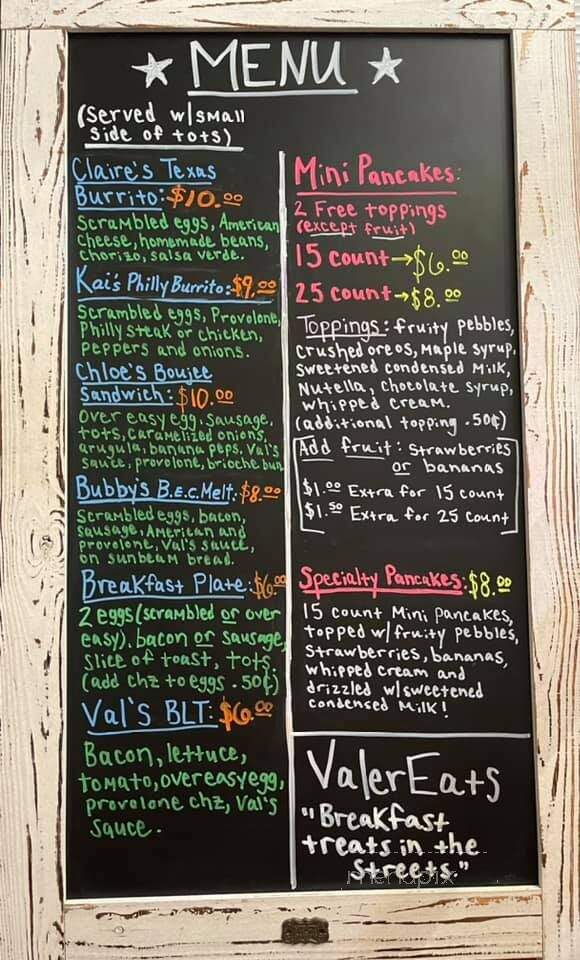 MENU
(Served w/small
side of tots)
Claire's Texas
Burrito: $10.00
Scrambled eggs, American
cheese, homemade beans,
chorizo, salsa verde.
Kai's Philly Burrito: $9.00
Scrambled eggs, Provolone,
Philly steak or chicken,
peppers and onions.
Chloe's Boujee
Sandwich: $10.00
Over easy egg, sausage,
tots, caramelized onions,
arugula, banana peps, Val's
sauce, provolone, brioche bun
Bubby's B.E.C. Melt: $8.00
Scrambled eggs, bacon,
sausage, American and
provolone, Val's sauce,
on sunbeam bread.
Breakfast Plate: $6.00
2 eggs (scrambled or over
easy). bacon or sausage,
slice of toast, tots.
(add chz to eggs .50¢)
Val's BLT: $6.00
Bacon, lettuce,
tomato, over easy egg,
provolone chz, Val's
sauce.
Mini Pancakes:
2 Free toppings
(except fruit)
15 count→$6.00
25 count→$8.00
Toppings: fruity pebbles,
crushed oreos, maple syrup,
sweetened condensed milk,
Nutella, chocolate syrup,
whipped cream.
(additional topping .50¢)
Add fruit: strawberries
or bananas
$1.00 Extra for 15 count
$1.50 Extra for 25 count
Specialty Pancakes: $8.00
15 count mini pancakes,
topped w/fruity pebbles,
strawberries, bananas,
whipped cream and
drizzled w/sweetened
condensed milk!
ValerEats
"Breakfast
treats in the
Streets."
menupix